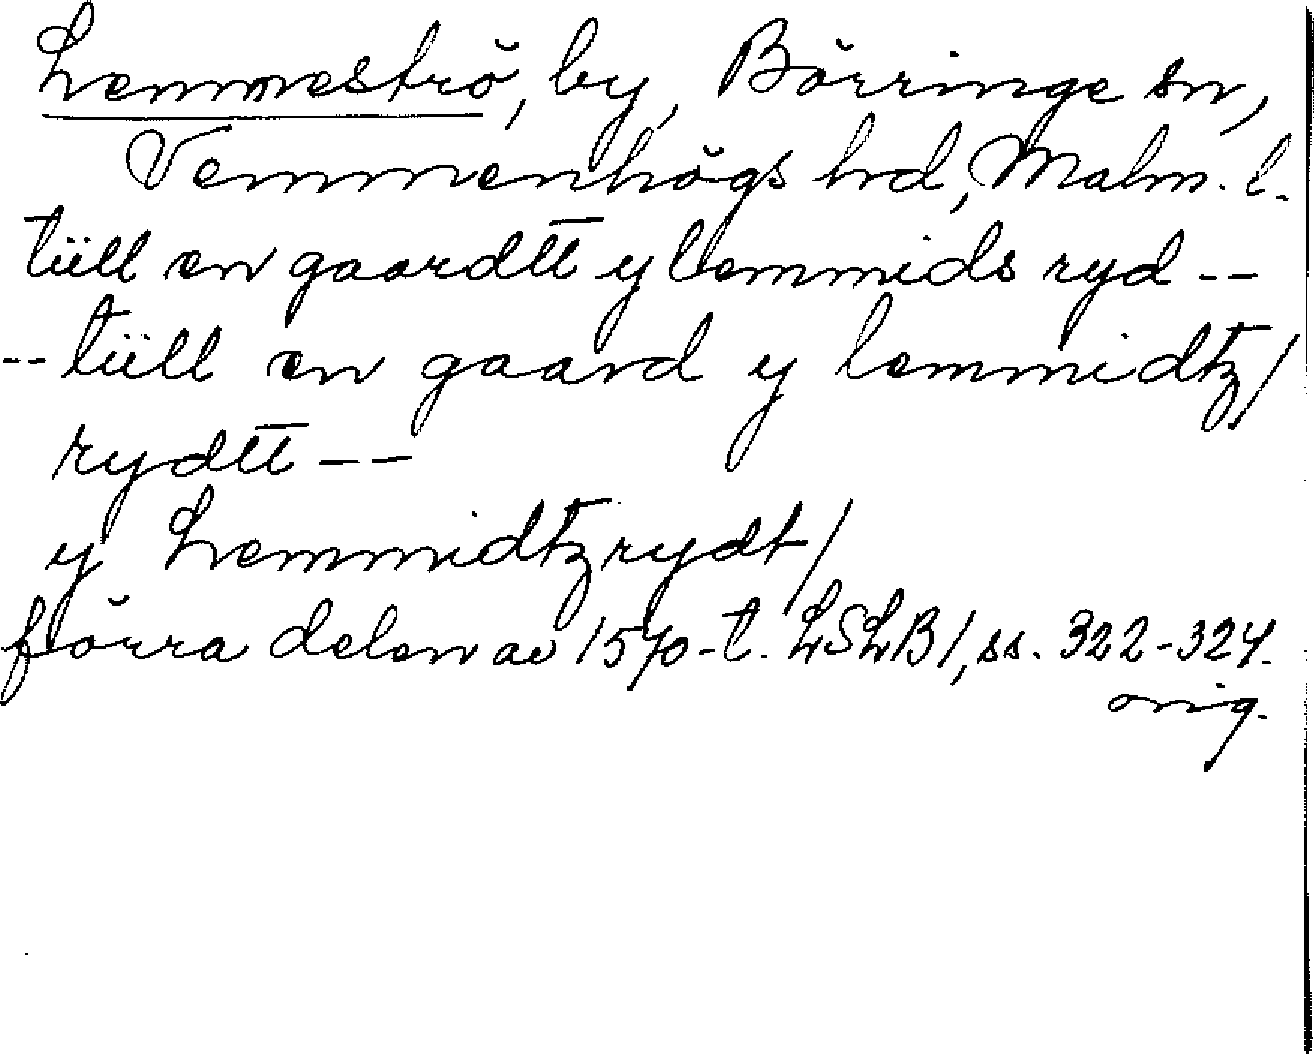 Lemmeströ, by, Börringe sn,
Vemmenhögs hrd, Malm. l.
tiill en gaardtt y lemmids ryd --
-- tiill en gaard y lemmidtz/
rydtt --
y Lemmidtzrydt/
förra delen av 1570-t. LSLB1, ss. 322-324.
orig.